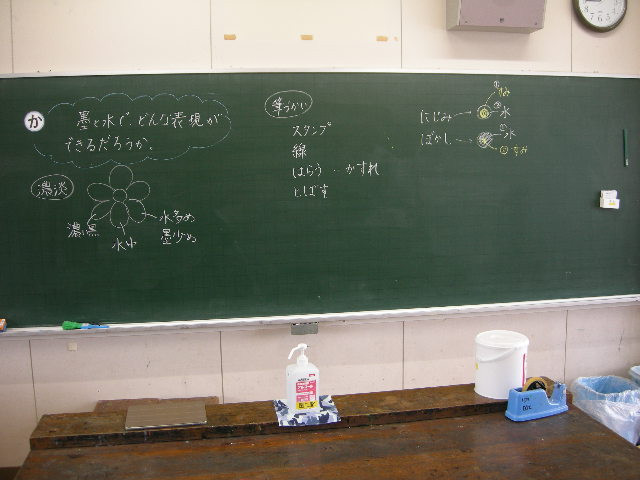 か
墨と水で、どんな表現が
できるだろうか。
濃淡
濃墨
水中
水多め
墨少め
筆づかい
スタンプ
線
はらう…かすれ
とばす
にじみ→
①すみ
②水
ぼかし→
①水
②すみ